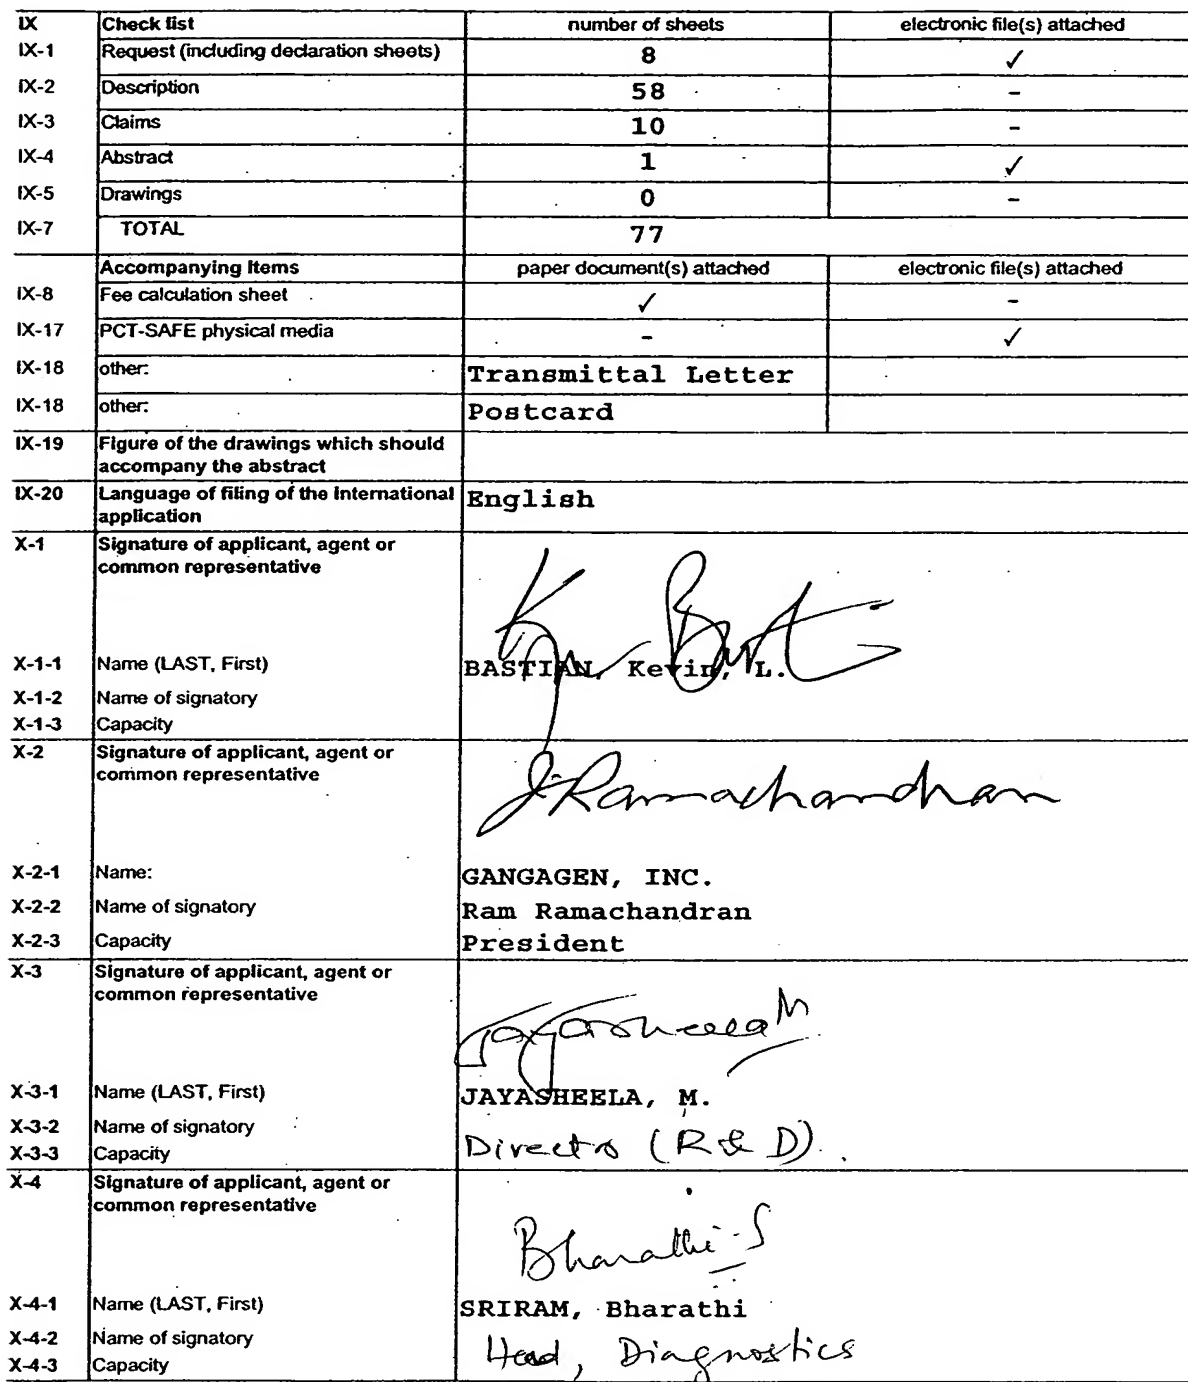 IX Check list number of sheets electronic file(s) attached
IX-1 Request (including declaration sheets) 8 ✓
IX-2 Description 58 -
IX-3 Claims 10 -
IX-4 Abstract 1 ✓
IX-5 Drawings 0 -
IX-7 TOTAL 77
Accompanying Items paper document(s) attached electronic file(s) attached
IX-8 Fee calculation sheet ✓ -
IX-17 PCT-SAFE physical media - ✓
IX-18 other: Transmittal Letter
IX-18 other: Postcard
IX-19 Figure of the drawings which should
accompany the abstract
IX-20 Language of filing of the International English
application
X-1 Signature of applicant, agent or
common representative
X-1-1 Name (LAST, First) BASTIAN, Kevin, L.
X-1-2 Name of signatory
X-1-3 Capacity
X-2 Signature of applicant, agent or
common representative
J. Ramachandran
X-2-1 Name: GANGAGEN, INC.
X-2-2 Name of signatory Ram Ramachandran
X-2-3 Capacity President
X-3 Signature of applicant, agent or
common representative
Jayasheela M
X-3-1 Name (LAST, First) JAYASHEELA, M.
X-3-2 Name of signatory
X-3-3 Capacity Director (R & D).
X-4 Signature of applicant, agent or
common representative
Bharathi.S
X-4-1 Name (LAST, First) SRIRAM, Bharathi
X-4-2 Name of signatory
X-4-3 Capacity Head, Diagnostics